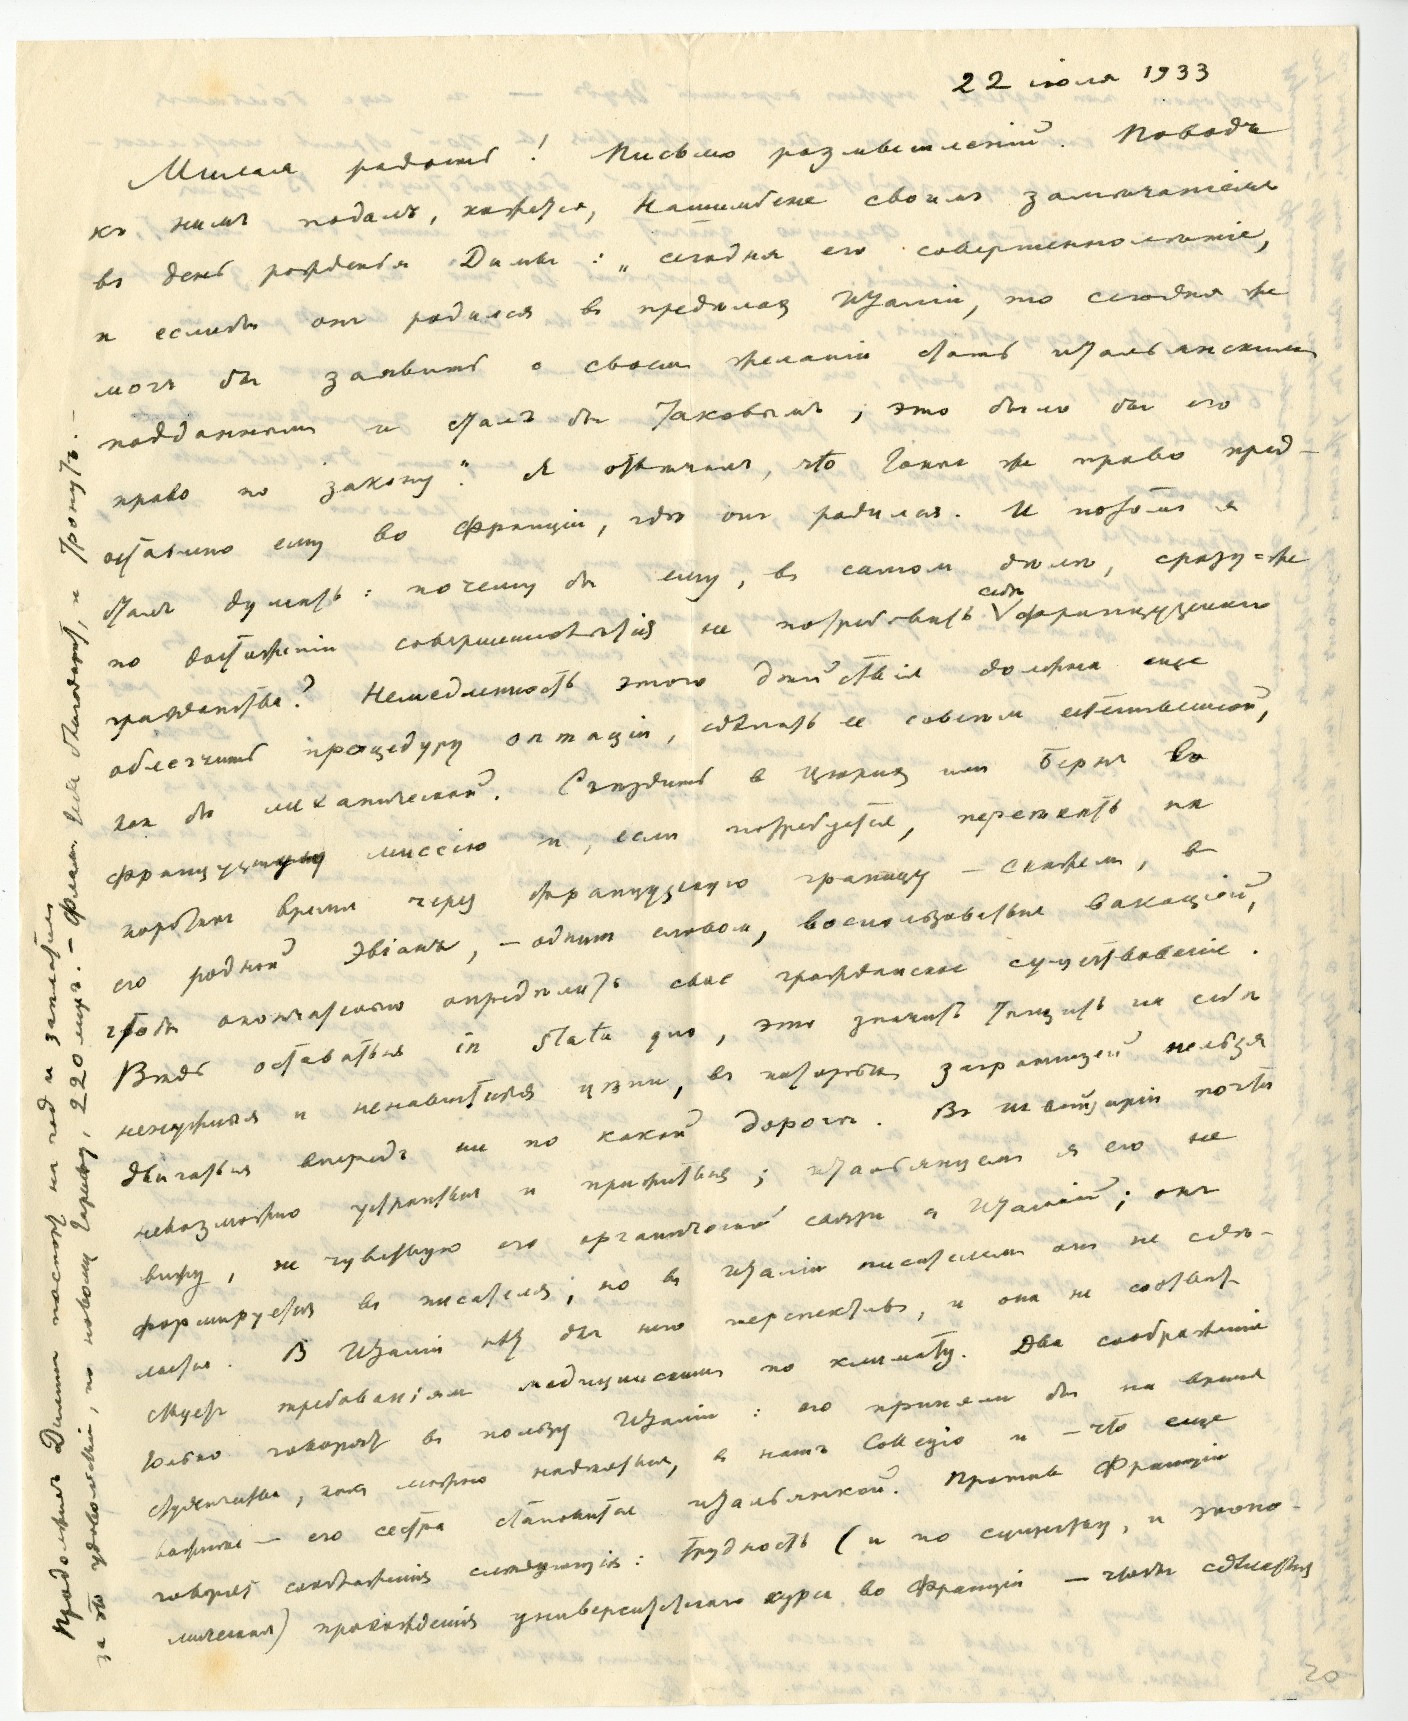 22 июля 1933
Милая радость! Письмо размышленій. Поводъ
къ нимъ подалъ, кажется, своимъ замѣчаніемъ
въ день рожденья Димы: „сегодня его совершеннолѣтіе,
и еслибы онъ родился въ предѣлах Италіи, то сегодня же
могъ бы заявить о своем желаніи стать итальянским
подданным и сталъ бы таковымъ; это было бы его
право по закону." Я отвѣчалъ, что такое же право пред-
оставлено ему во Франціи, гдѣ онъ родился. И потомъ я
сталъ думать: почему бы ему, въ самом дѣлѣ, сразу-же
по достиженіи совершеннолѣтія не потребовать себѣ французскаго
гражданства? Немедленность этого дѣйствія должна еще
облегчить процедуру оптаціи, сдѣлать ее совсѣм естественной,
как бы механической. Съѣздить в Цюрих или Бернъ во
французскую миссію и, если потребуется, переѣхать на
короткое время через французскую границу — скажем, в
его родной Эвіанъ, — одним словом, воспользоваться вакаціей,
чтобы окончательно опредѣлить свое гражданское существованіе.
Вѣдь оставаться in statu quo, это значитъ тащить на себѣ
ненужныя и ненавистныя цѣпи, въ которыхъ заграницей нельзя
двигаться впередъ ни по какой дорогѣ. Въ Швейцаріи почти
невозможно устроиться и прижиться; итальянцем я его не
вижу, не чувствую его органической связи с Италіей; онъ
формируется въ писателя; но въ Италіи писателем онъ не сдѣ-
лается. В Италіи нѣт для него перспективъ, и она не соотвѣт-
ствуетъ требованіям медицинским по климату. Два соображенія
только говорят въ пользу Италіи: его приняли бы на время
студенчества, как можно надѣяться, в наш Collegio и — что еще
важнѣе — его сестра становится итальянкой. Противъ Франціи
говорят соображенія слѣдующія: трудность (и по существу, и эконо-
мическая) прохожденія университетскаго курса во Франціи — чтобы сдѣлаться
Продолжилъ Димин паспорт на год и заплатил
за это удовольствіе, по новому тарифу, 220 лиръ. — Фламинго благодарит, и тронутъ. —
20